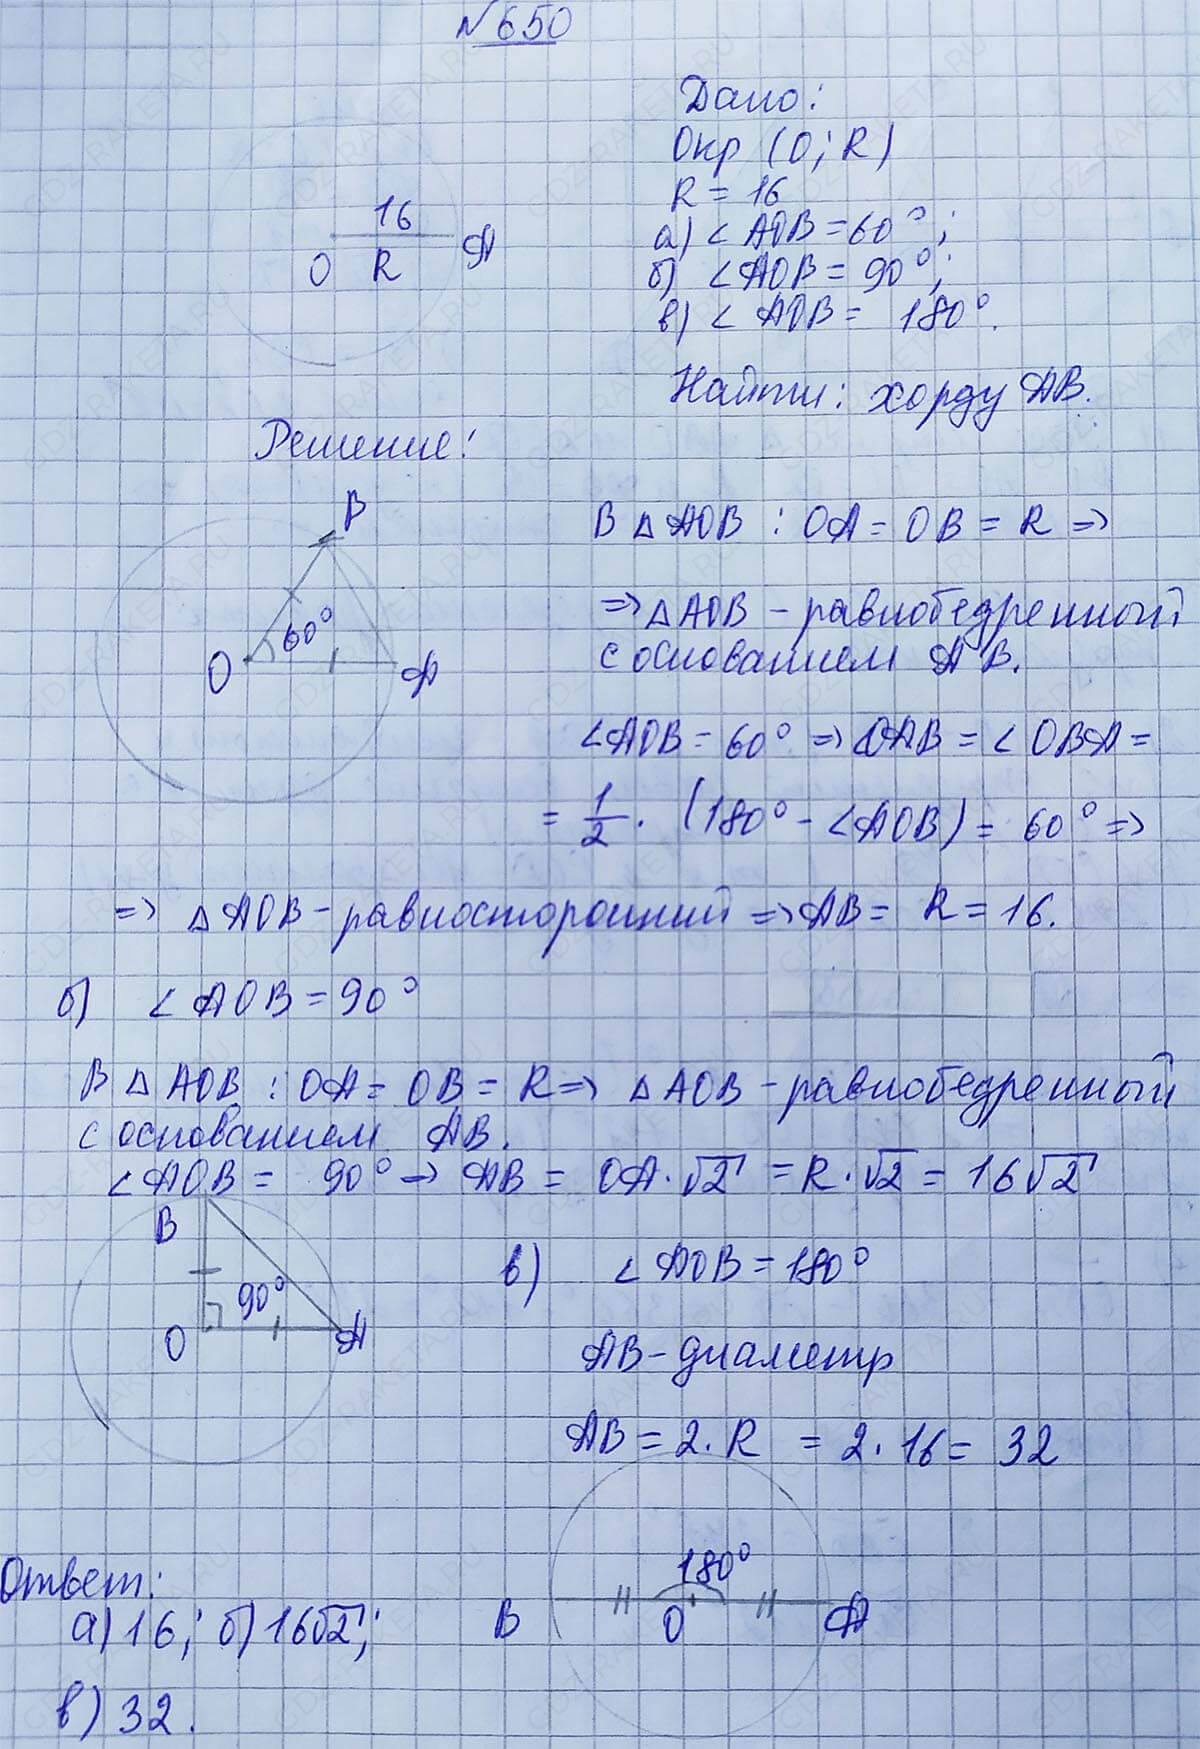 №650
Дано:
Окр (O; R)
R = 16
а) ∠AOB = 60°;
б) ∠AOB = 90°;
в) ∠AOB = 180°.
16
O R A
Найти: хорду AB.
Решение:
B
60°
O A
В △AOB : OA = OB = R =>
=> △AOB - равнобедренный
с основанием AB.
∠AOB = 60° => ∠OAB = ∠OBA =
= 1/2 · (180° - ∠AOB) = 60° =>
=> △AOB - равносторонний => AB = R = 16.
б) ∠AOB = 90°
В △AOB : OA = OB = R => △AOB - равнобедренный
с основанием AB.
∠AOB = 90° => AB = OA · √2 = R · √2 = 16√2
B
90°
O A
в) ∠AOB = 180°
AB - диаметр
AB = 2 · R = 2 · 16 = 32
180°
B O A
Ответ:
а) 16; б) 16√2;
в) 32.